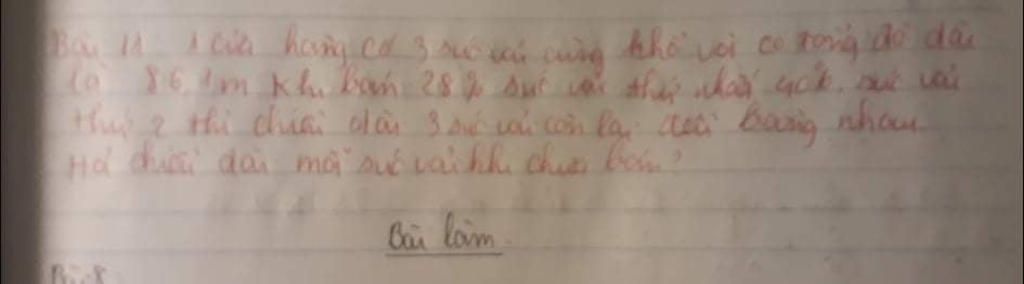 Bài 11 1 cửa hàng có 3 súc vải cùng khổ với có tổng độ dài
là 86, 1m Khi bán 28% súc vải thứ nhất súc vải
thứ 2 thì chiều dài 3 súc vải còn lại đều bằng nhau
Hỏi chiều dài mỗi súc vải khi chưa bán?
Bài làm